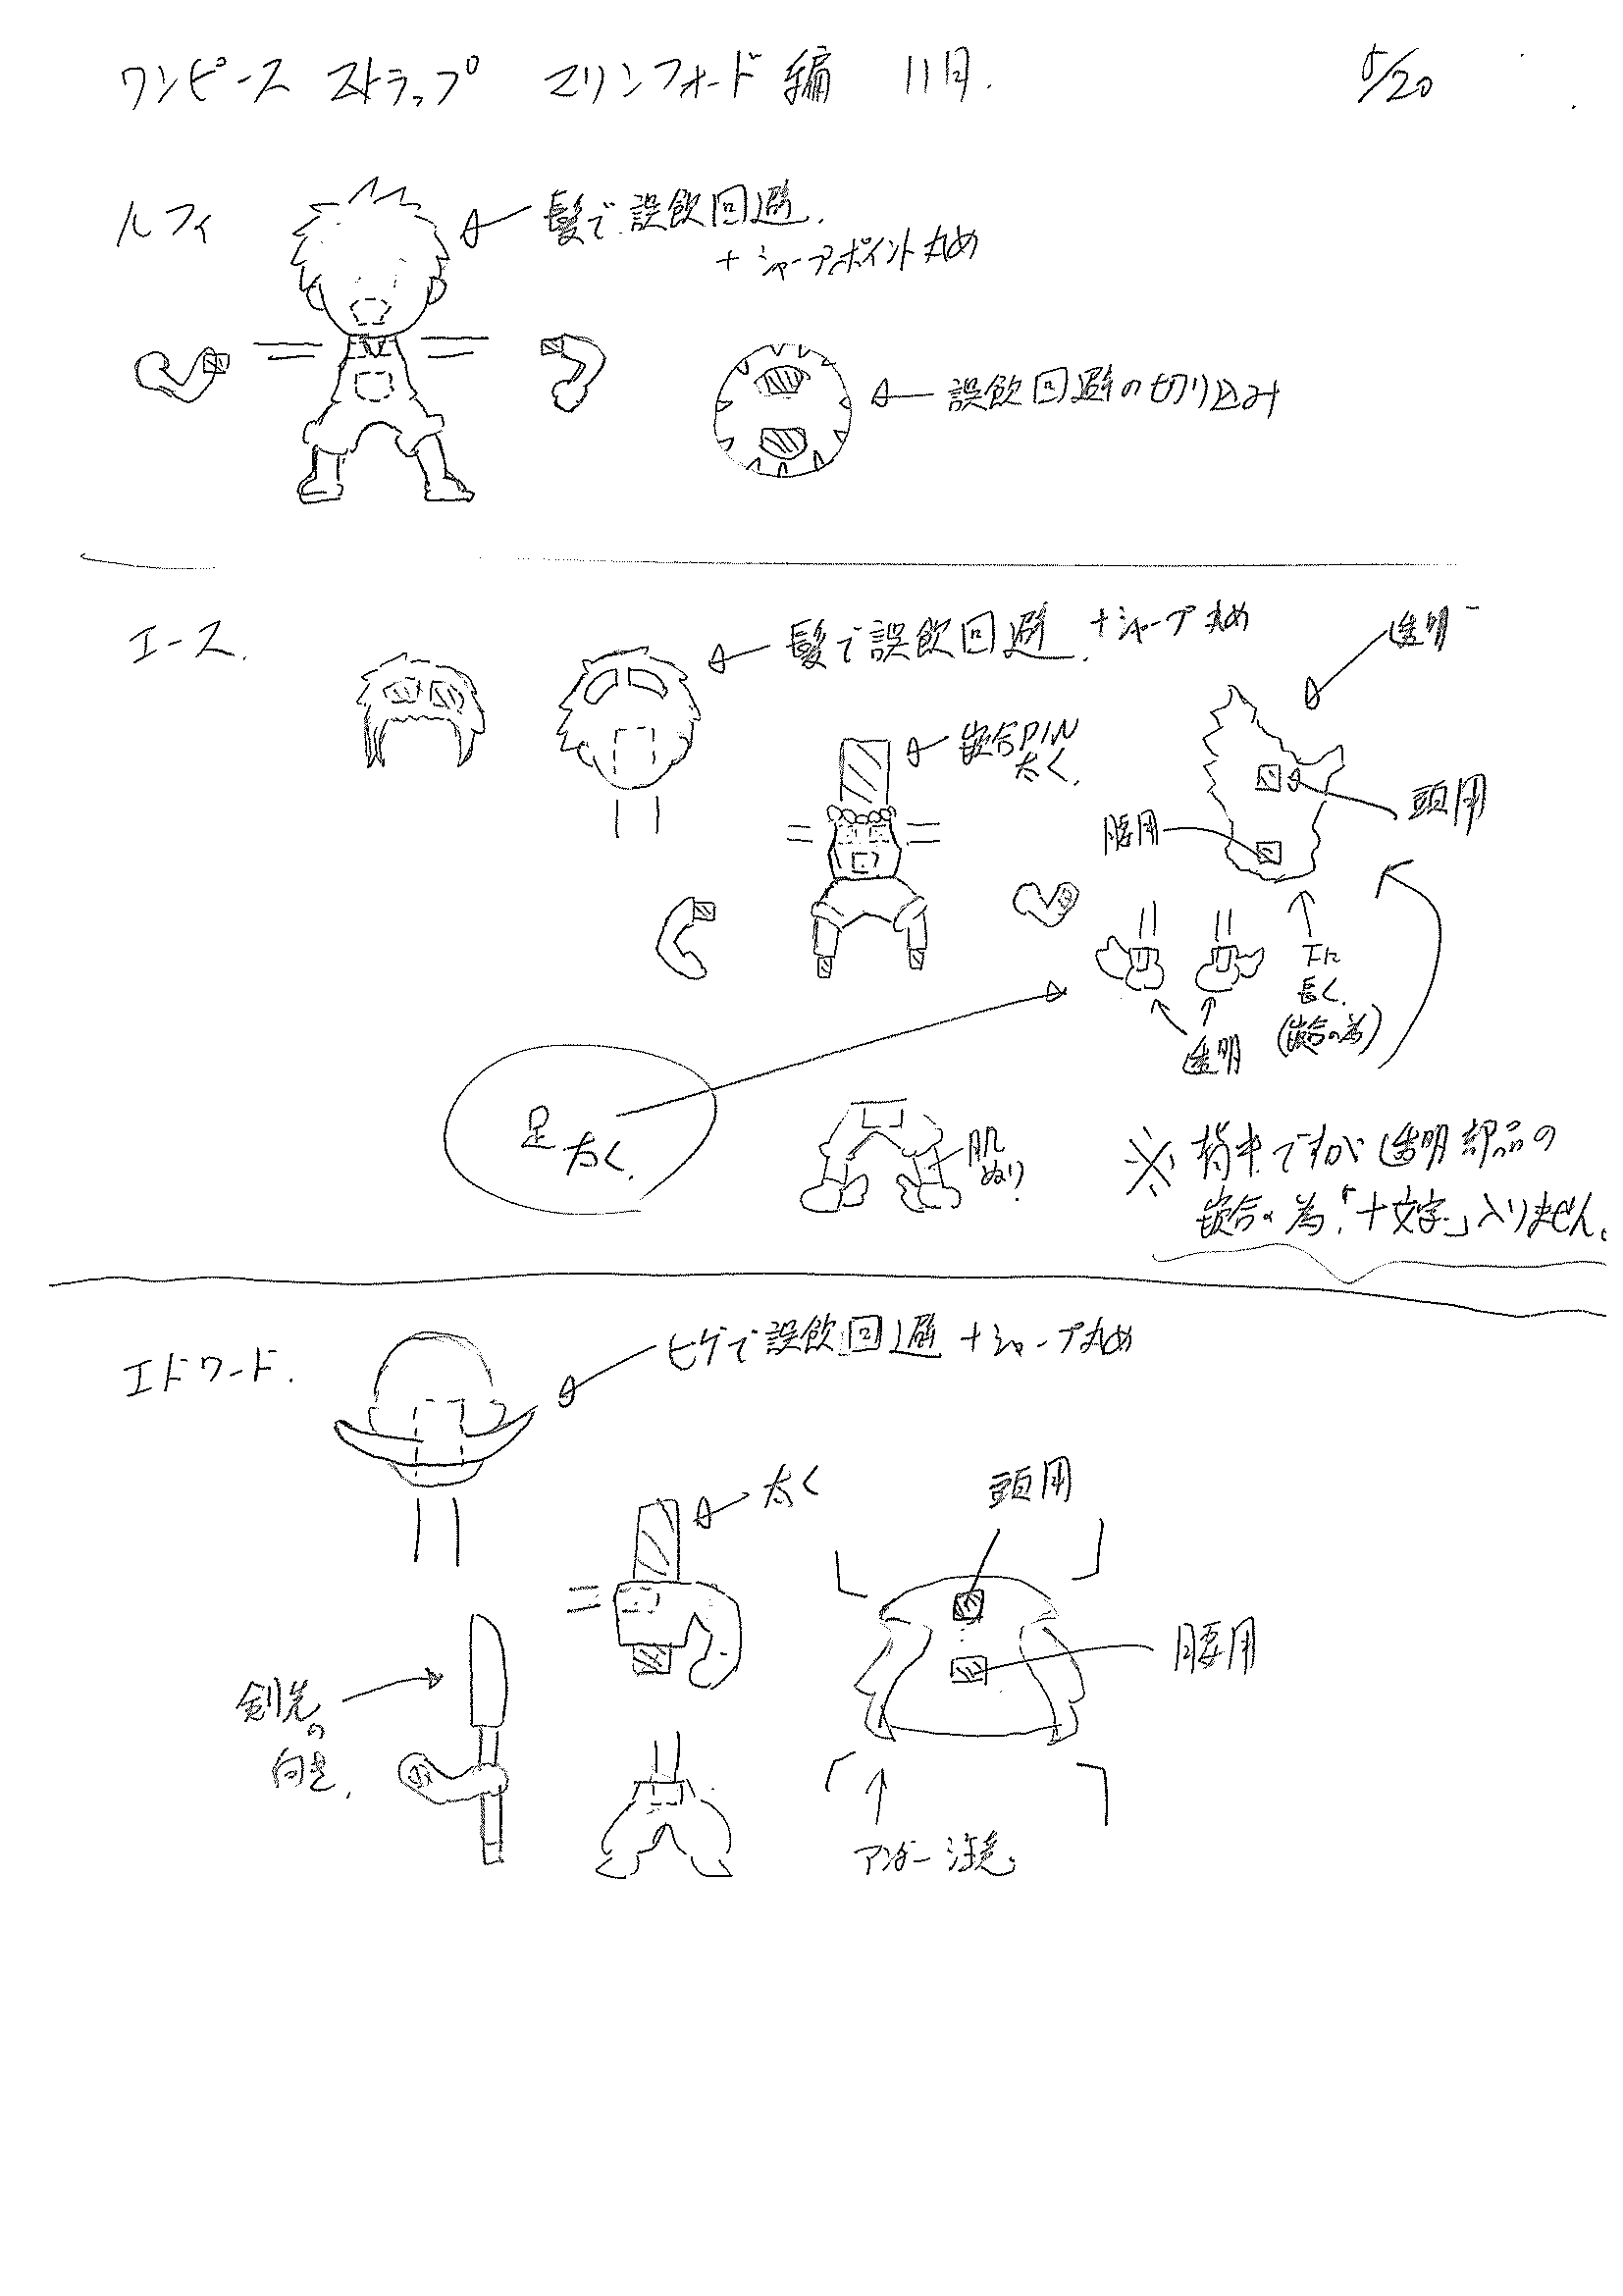 ワンピース ストラップ マリンフォード編 11月. 5/20
ルフィ
髪で誤飲回避.
+シャープポイント丸め
誤飲回避の切り込み
エース.
髪で誤飲回避. +シャープ丸め
透明
嵌合PIN
太く.
頭用
腰用
下に
長く.
(嵌合の為)
透明
足
太く.
肌
ぬり
※ 背中ですが透明部品の
嵌合の為.「十文字」入りません。
エドワード.
ヒゲで誤飲回避 +シャープ丸め
太く
頭用
腰用
剣先
の
向き.
アンダー注意。